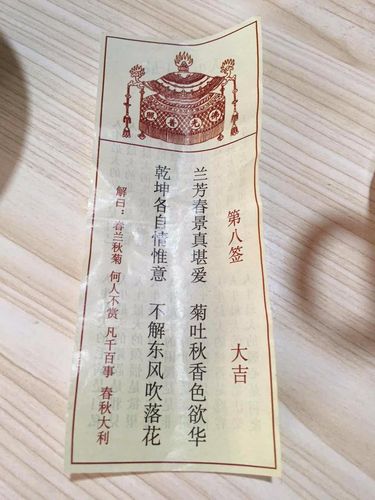 第八签 大吉
兰芳春景真堪爱 菊吐秋香色欲华
乾坤各自情惟意 不解东风吹落花
解曰：春兰秋菊 何人不赏 凡千百事 春秋大利